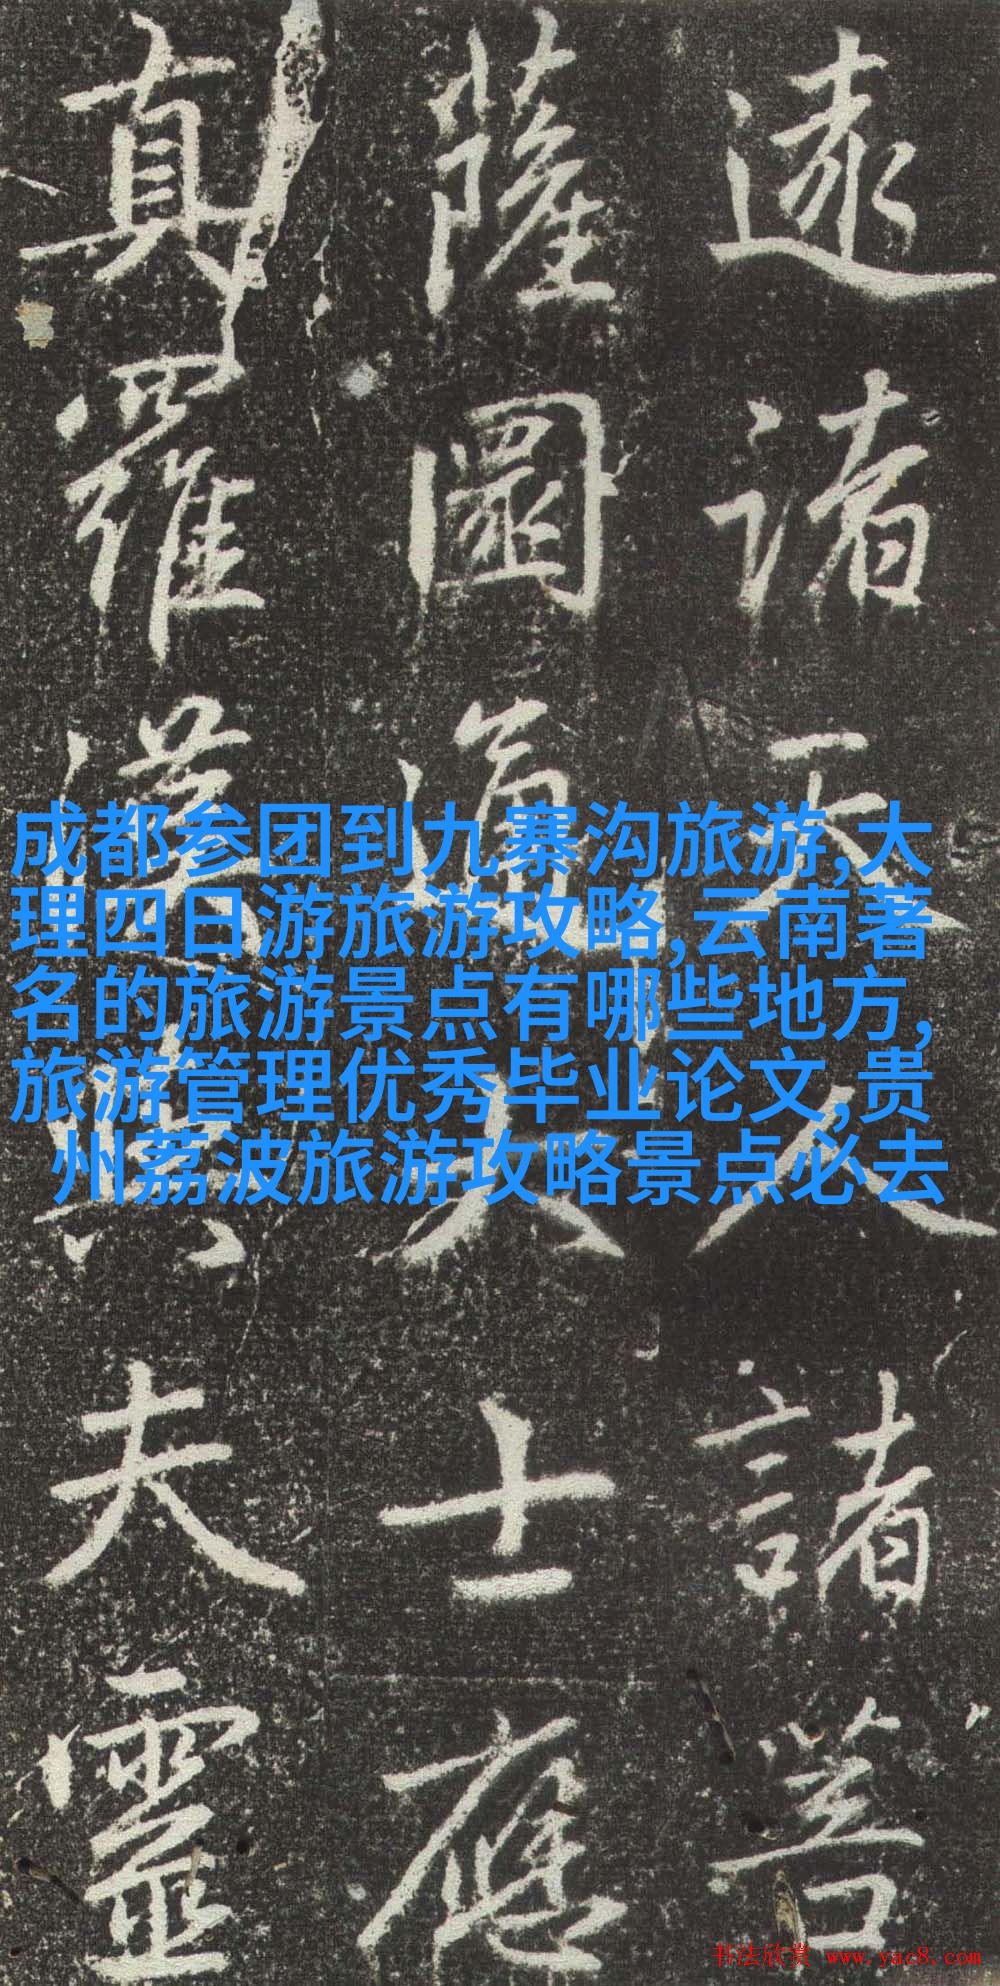 諸天人諸菩
薩圓通大士應
真羅漢與夫靈
成都参团到九寨沟旅游,大
理四日游旅游攻略,云南著
名的旅游景点有哪些地方,
旅游管理优秀毕业论文,贵
州荔波旅游攻略景点必去
书法欣赏 www.yac8.com